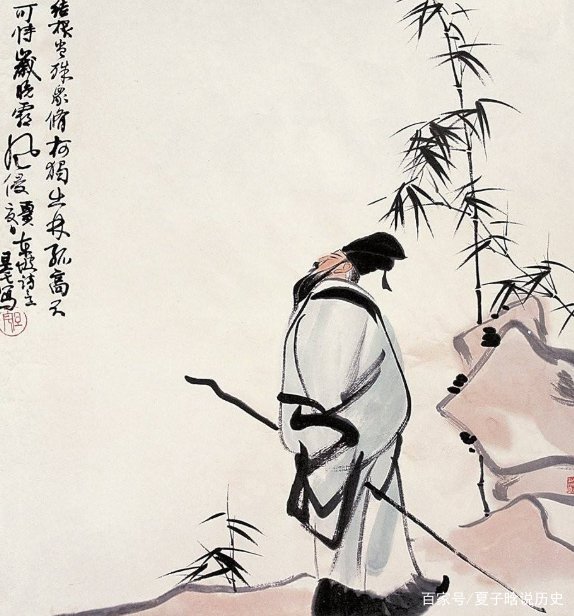 結根岂殊眾脩柯獨出林孤高不
可恃歲晚霜風侵
東坡诗意
寫
百家号/夏子晗说历史